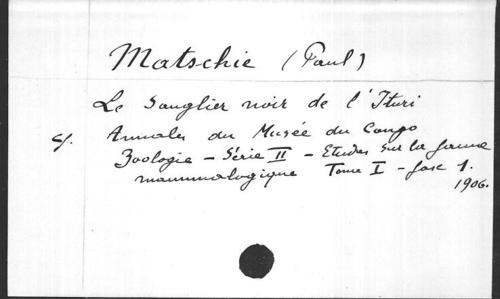 Matschie (Paul)
Le Sanglier noir de l'Ituri
S/. Annales du Musée du Congo
Zoologie – Série II – Etudes sur la faune
mammalogique Tome I – fasc 1.
1906.